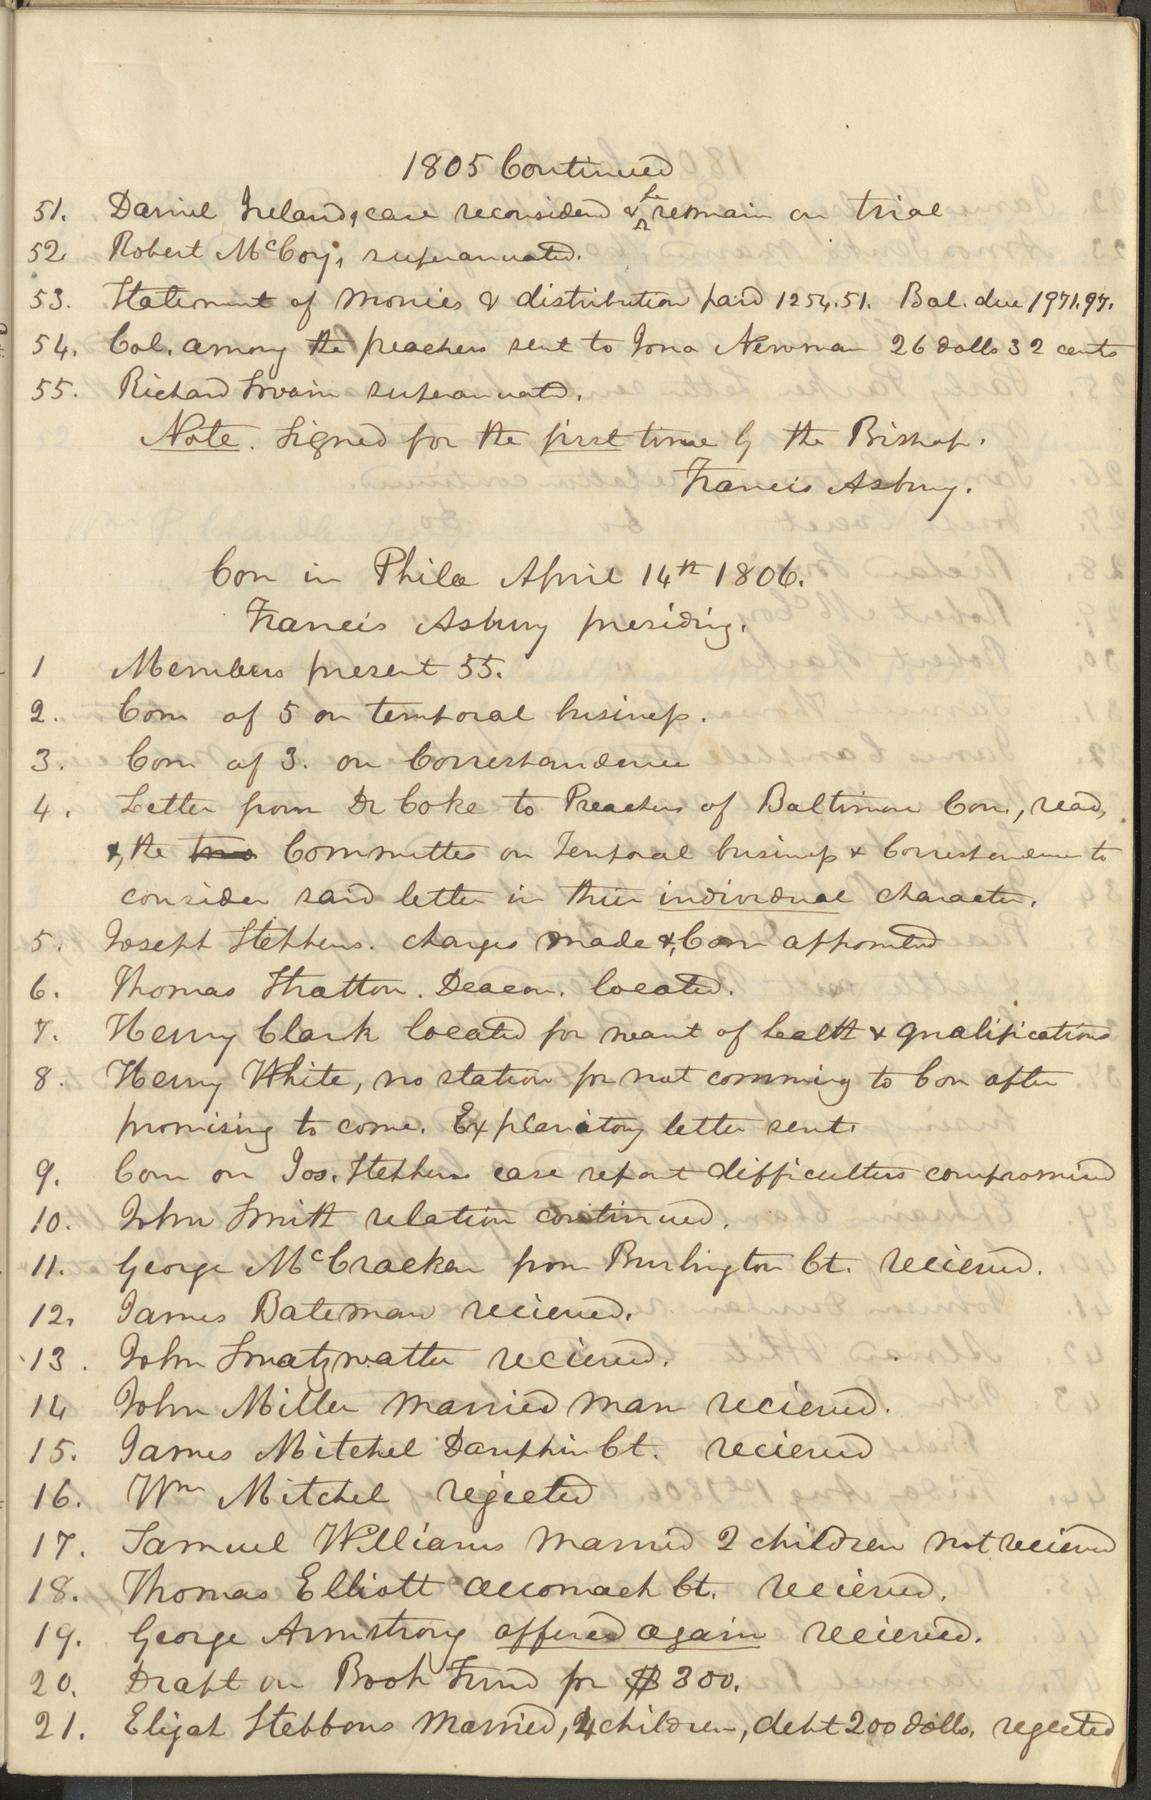 1805 Continued
51. Daniel Ireland, case reconsidered & he remain on trial
52. Robert McCoy, superanuated.
53. Statement of monies & distribution paid 1254.51. Bal. due 1971.97.
54. Col. among the preachers sent to Jona Newman 26 dolls 32 cents
55. Richard Swain superanuated.
Note. Signed for the first time by the Bishop.
Francis Asbury.
Con in Phila April 14th 1806.
Francis Asbury presiding.
1 Members present 55.
2. Com of 5 on temporal business.
3. Com of 3. on Correspondence
4. Letter from Dr Coke to Preachers of Baltimore Con., read,
&, the two Committes on Temporal business & Correspondence to
consider said letter in their individual character.
5. Joseph Stephens. charges made &, Com appointed
6. Thomas Stratton. Deacon. located.
7. Henry Clark located for want of health & qualifications
8. Henry White, no station for not comming to Con after
promising to come. Explanitory letter sent.
9. Com on Jos. Stephens case report difficulties compromised
10. John Smith relation continued.
11. George McCracken from Burlington Ct. recieved.
12. James Bateman recieved.
13. John Swatzwatter recieved.
14 John Miller married man recieved.
15. James Mitchel Dauphin Ct. recieved
16. Wm Mitchel rejected
17. Samuel Williams married 2 children not recieved
18. Thomas Elliott Accomack Ct. recieved.
19. George Armstrong offered again recieved.
20. Draft on Book Fund for $300.
21. Elijah Stebbons married, 4 children, debt 200 dolls. rejected